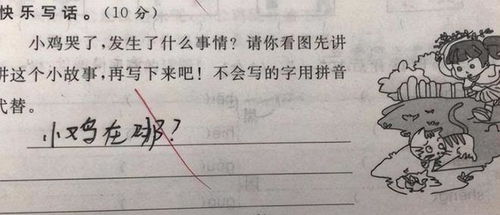 快乐写话。(10分)
小鸡哭了,发生了什么事情?请你看图先讲
讲这个小故事,再写下来吧!不会写的字用拼音
代替。
小鸡在哪?